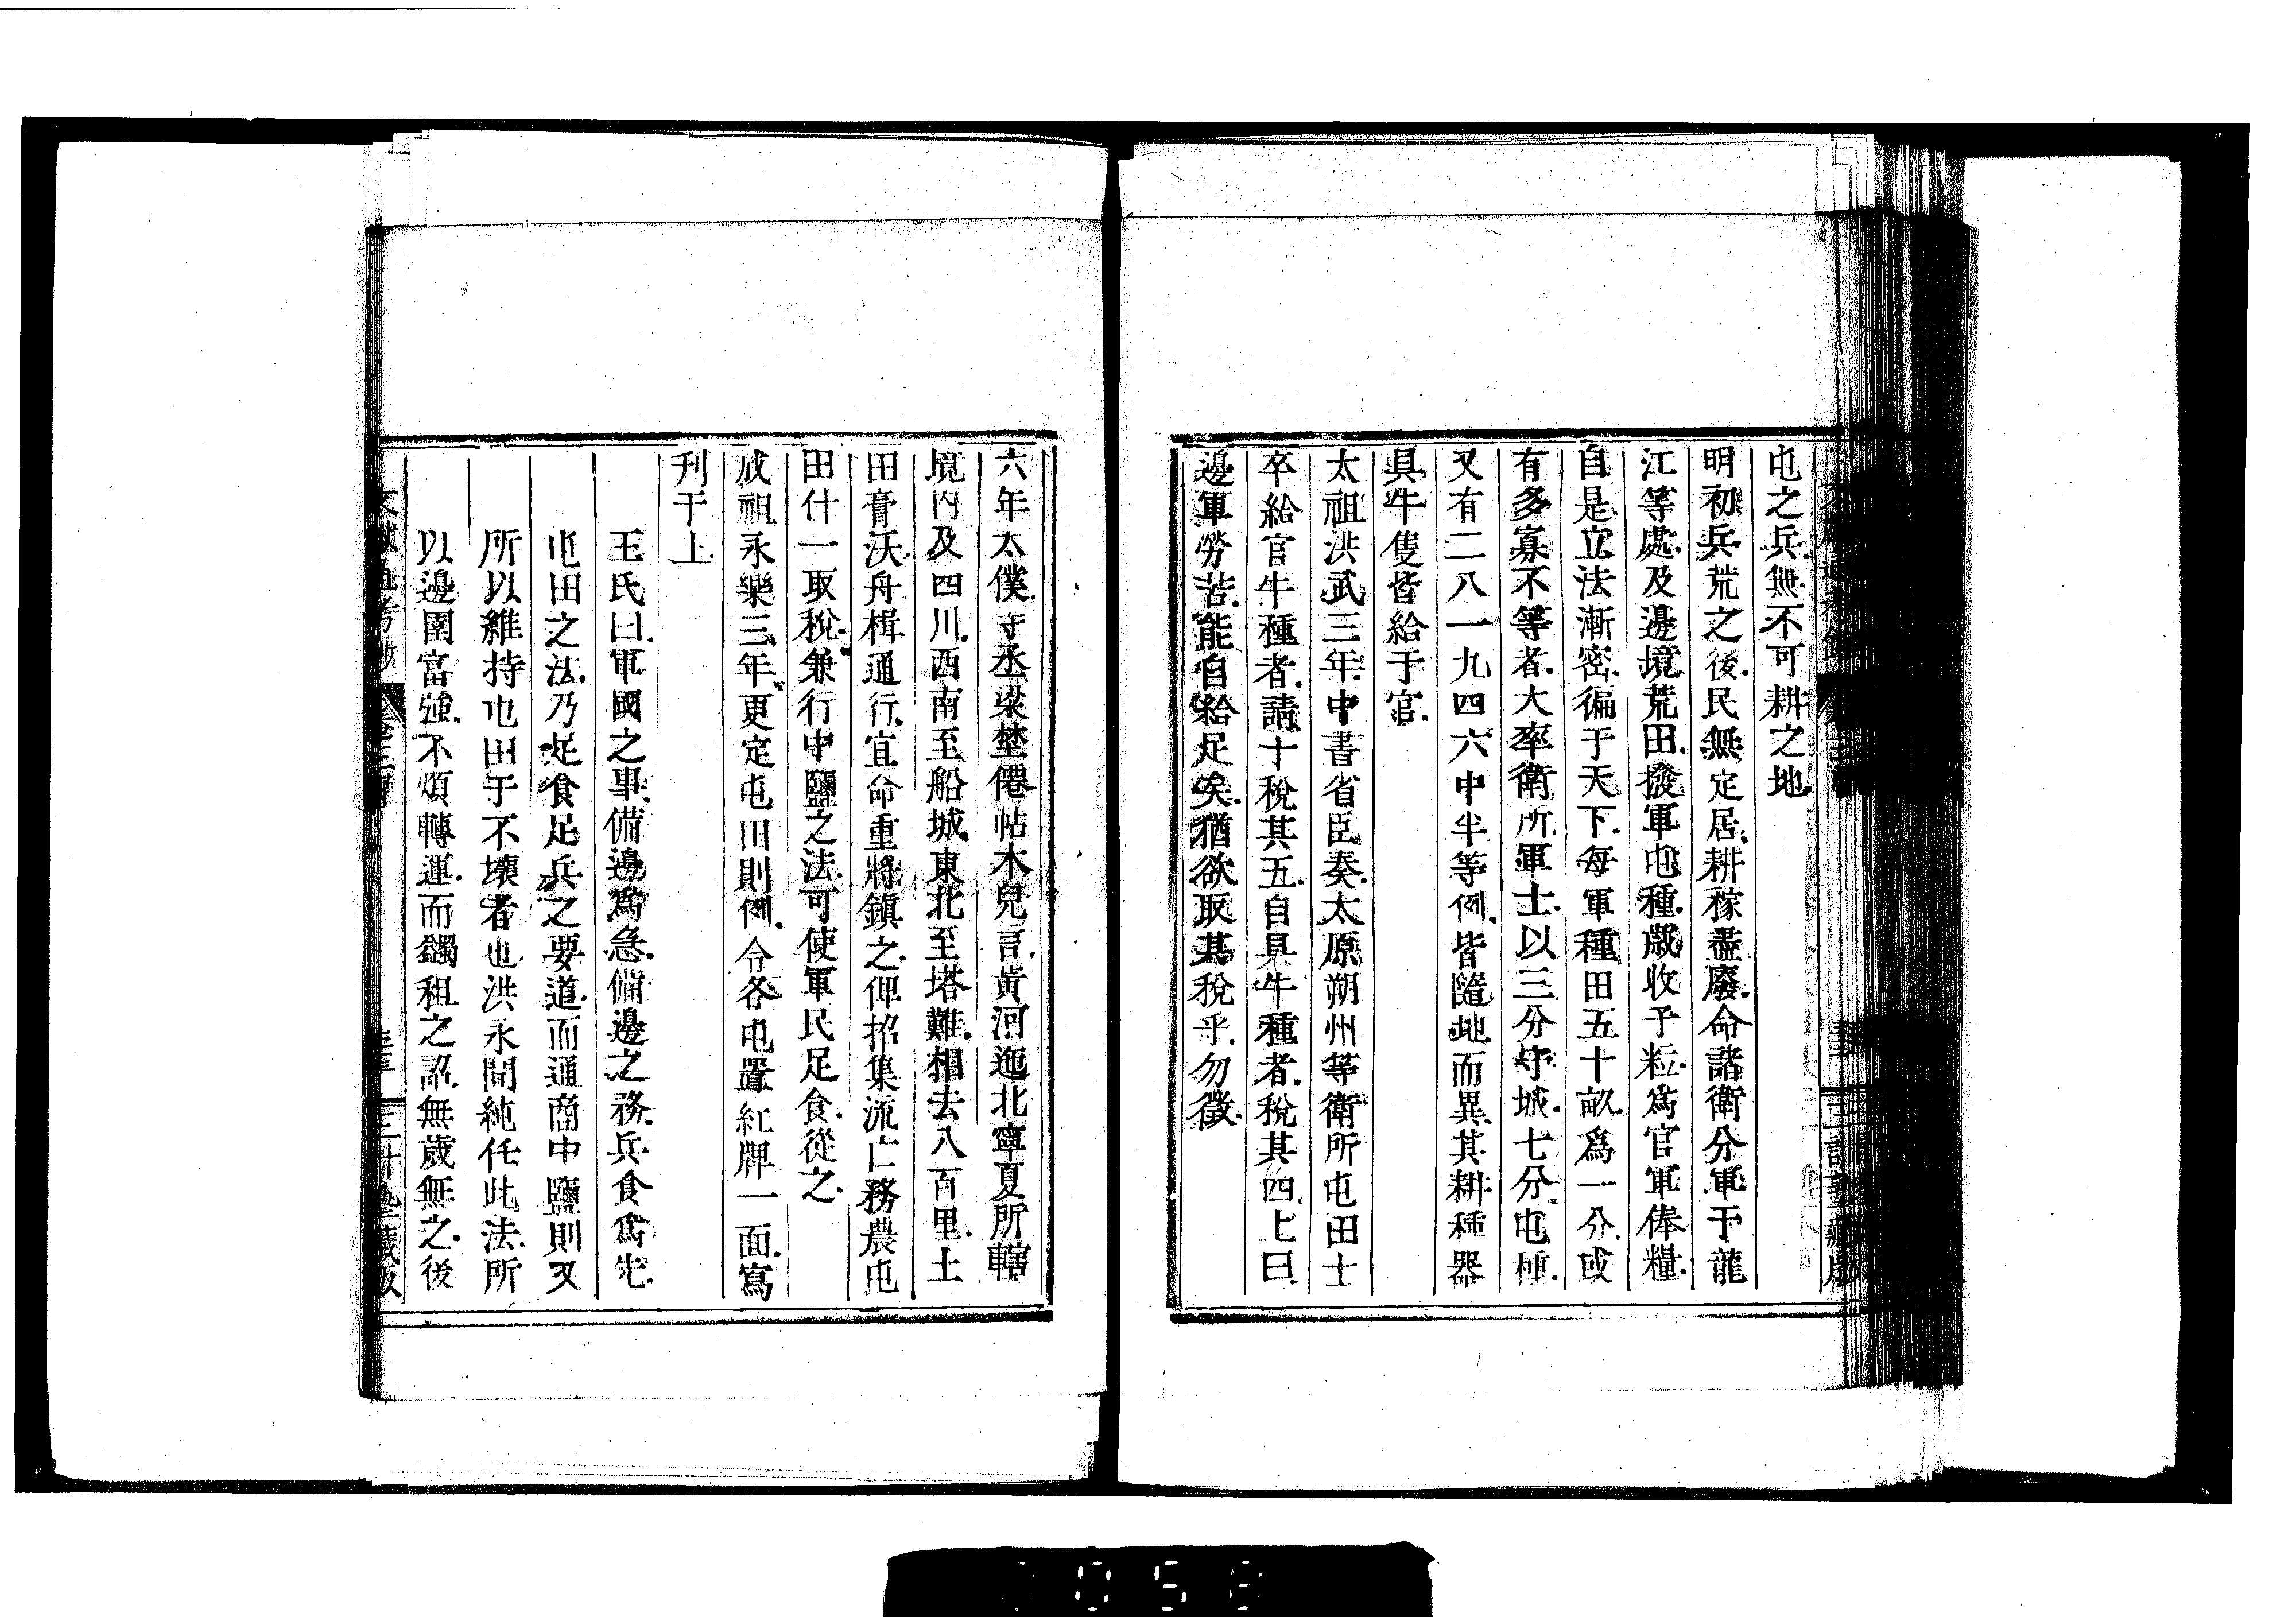 屯之兵無不可耕之地
明初兵荒之後民無定居耕稼盡廢命諸衛分軍于龍
江等處及邊境荒田撥軍屯種歲收予粒爲官軍俸糧
自是立法漸密徧于天下每軍種田五十畝爲一分或
有多寡不等者大率衛所軍士以三分守城七分屯種
又有二八一九四六中半等例皆隨地而異其耕種器
具牛隻皆給于官
太祖洪武三年中書省臣奏太原朔州等衛所屯田士
卒給官牛種者請十稅其五自具牛種者稅其四上曰
邊軍勞苦能自給足矣猶欲取其稅乎勿徵
六年太僕寺丞梁埜僊帖木兒言黃河迤北寧夏所轄
境內及四川西南至船城東北至塔難相去八百里土
田膏沃舟楫通行宜命重將鎮之俾招集流亡務農屯
田什一取稅兼行中鹽之法可使軍民足食從之
成祖永樂三年更定屯田則例令各屯置紅牌一面寫
刋于上
王氏曰軍國之事備邊爲急備邊之務兵食爲先
屯田之法乃足食足兵之要道而通商中鹽則又
所以維持屯田于不壞者也洪永間純任此法所
以邊圉富強不煩轉運而蠲租之詔無歲無之後
文獻通考 卷三